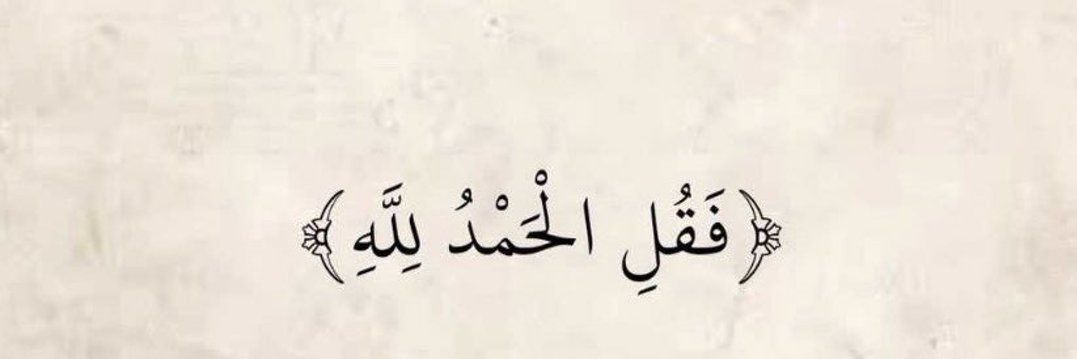 ﴿فَقُلِ الْحَمْدُ لِلَّهِ﴾